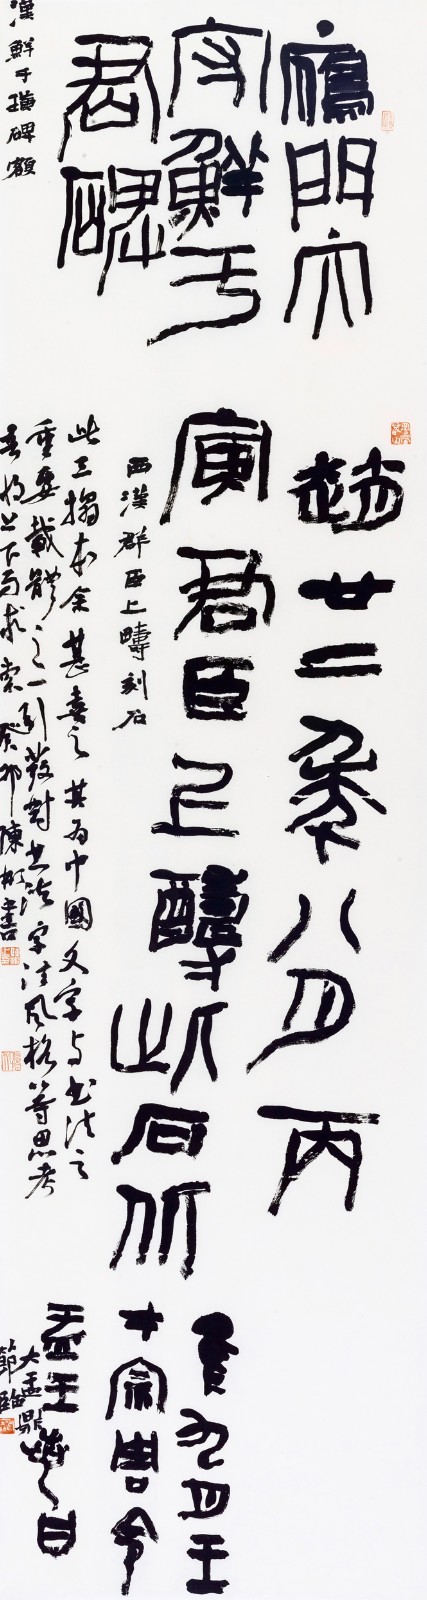 鴈門太
守鮮于
君碑
漢鮮于璜碑額
趙廿二年八月丙
寅君臣上醻此石北
西漢群臣上醻刻石
此三搨本余甚喜之其為中國文字与書法之
重要載體之一引發對書法字法風格等思考
吾將上下而求索癸卯陳彬書
隹九月王
才宗周令
盂王若曰
大盂鼎
節臨